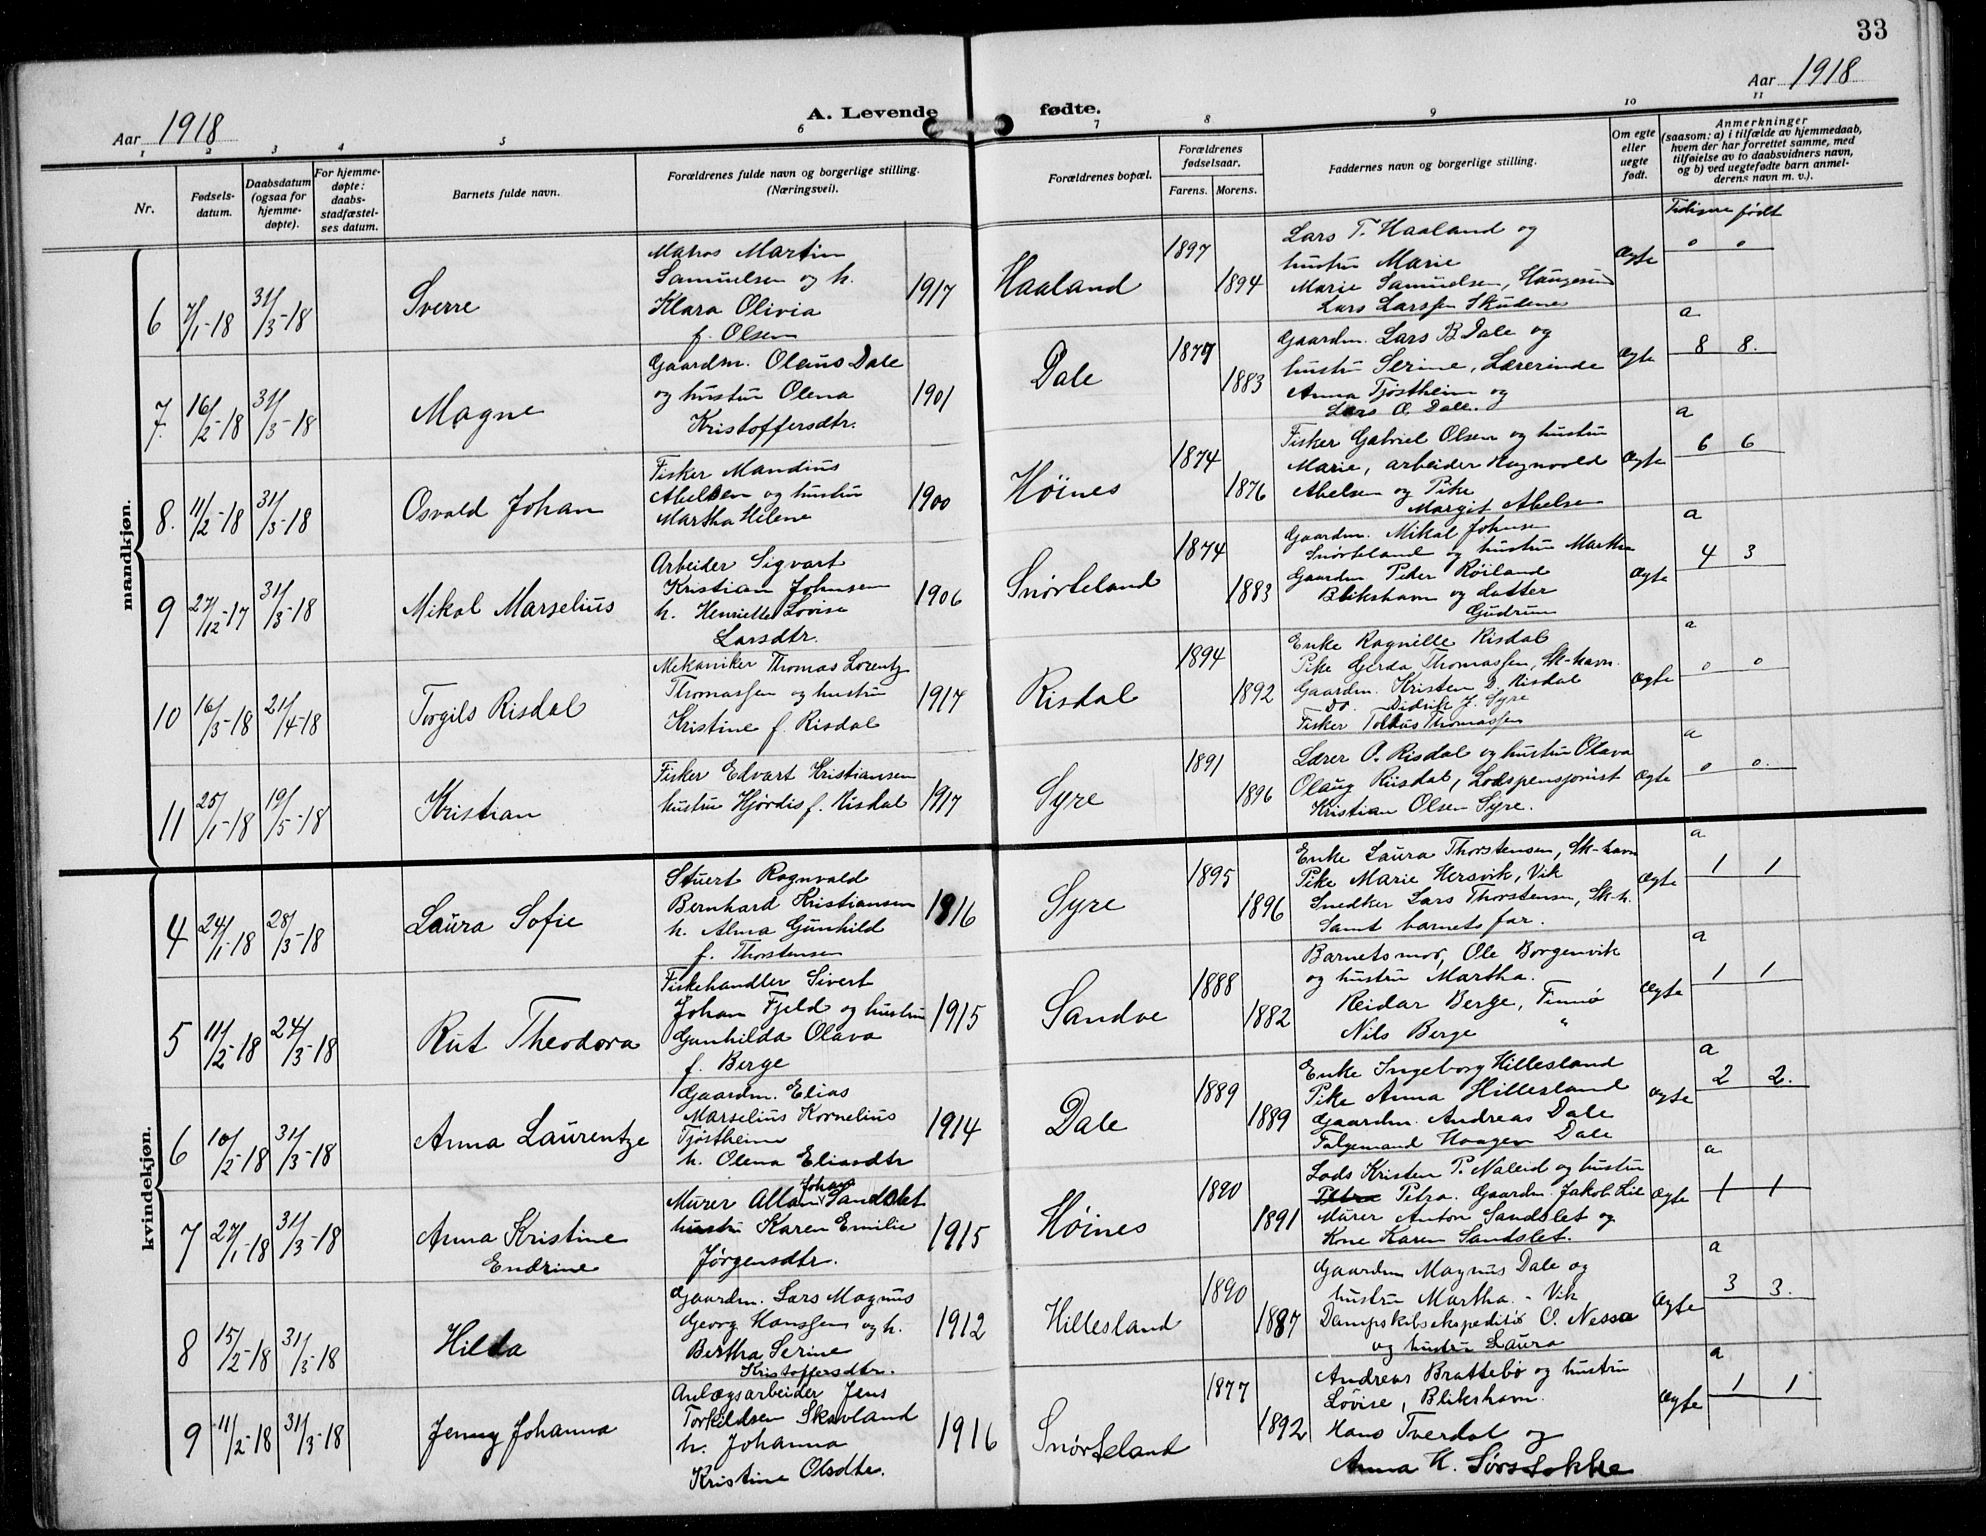 33
Aar 1918
A. Levende fødte.
Aar 1918
1 2 3 4 5 6 7 8 9 10 11
Nr.
Fødsels-
datum.
Daabsdatum
(ogsaa for
hjemme-
døpte).
For hjemme-
døpte:
daabs-
stadfæstel-
ses datum.
Barnets fulde navn.
Forældrenes fulde navn og borgerlige stilling.
(Næringsvei).
Forældrenes bopæl.
Forældrenes
fødselsaar.
Farens. Morens.
Faddernes navn og borgerlige stilling.
Om egte
eller
uegte
født.
Anmerkninger
(saasom: a) i tilfælde av hjemmedaab,
hvem der har forrettet samme, med
tilføielse av to daabsvidners navn,
og b) ved uegtefødte barn anmel-
derens navn m. v.).
Tidligere født
mandkjøn.
6 7/1-18 31/3-18 Sverre
Matros Martin
Samuelsen og h.
Klara Olivia
f. Olsen
1917 Haaland 1897 1894
Lars T. Haaland og
hustru Marie
Marie Samuelsen, Haugesund
Lars Larssen Skudene
Ægte
0 0
7. 16/2-18 31/3-18 Magne
Gaardm. Olaus Dale
og hustru Olena
Kristoffersdtr.
1901 Dale 1877 1883
Gaardm. Lars B Dale og
hustru Serine, Lærerinde
Anna Tjøstheim og
Lars O. Dale.
Ægte
a
8 8.
8. 11/2-18 31/3-18 Osvald Johan
Fisker Mandius
Abelsen og hustru
Martha Helene
1900 Høines 1874 1876
Fisker Gabriel Olsen og hustru
Marie, arbeider Ragnvald
Abelsen og Pike
Margit Abelsen
Ægte
a
6 6
9 27/12-17 31/3-18 Mikal Marselius
Arbeider Sigvart
Kristian Johnsen
h. Henriette Lovise
Larsdtr.
1906 Snørteland 1874 1883
Gaardm. Mikal Johnsen
Snørteland og hustru Martha
Gaardm Peter Røiland
Blikshavn og datter
Gudrun
Ægte
a
4 3
10 16/3-18 21/4-18 Torgils Risdal
Mekaniker Thomas Lorentz
Thomassen og hustru
Kristine f. Risdal
1917 Risdal 1894 1892
Enke Ragnille Risdal
Pike Gerda Thomassen, Sk-havn.
Gaardm. Kristen D. Risdal
Do. Didrik J. Syre
Fisker Thomassen
Ægte
a
0 0
11 25/1-18 19/5-18 Kristian
Fisker Edvart Kristiansen
hustru Hjørdis f. Risdal
1917 Syre 1891 1896
Lærer O. Risdal og hustru Olava
Olaug Risdal, Lodspensjonist
Kristian Olsen Syre.
Ægte
a
0 0.
kvindekjøn.
4 24/1-18 28/3-18 Laura Sofie
Stuert Ragnvald
Bernhard Kristiansen
h. Alma Gunhild
f. Thorstensen
1916 Syre 1895 1896
Enke Laura Thorstensen, Sk-havn
Pike Marie Hersvik, Vik
Snedker Lars Thorstensen, Sk-h.
Samt barnets far.
Ægte
a
1 1
5 11/2-18 24/3-18 Rut Theodora
Fiskehandler Sivert
Johan Fjeld og hustru
Gunhilda Olava
f. Berge
1915 Sandve 1888 1882
Barnets mor, Ole Borgenvik
og hustru Martha.
Reidar Berge, Finnø
Nils Berge "
Ægte
a
1 1
6 10/2-18 31/3-18 Anna Laurentze
Gaardm. Elias
Marselius Kornelius
Tjøstheim
h. Olena Eliasdtr
1914 Dale 1889 1889
Enke Ingeborg Hillesland
Pike Anna Hillesland
Gaardm. Andreas Dale
Følgemand Haagen Dale
Ægte
a
2 2.
7 27/1-18 31/3-18 Anna Kristine
Endrine
Murer Allan Johan Sandslet
hustru Karen Emilie
Jørgensdtr.
1915 Høines 1890 1891
Lods Kristen P. Naleid og hustru
Petra Petra. Gaardm. Jakob Lie
Murer Anton Sandslet og
Kone Karen Sandslet.
Ægte
a
1 1
8 15/2-18 31/3-18 Hilda
Gaardm. Lars Magnus
Georg Hanssen og h.
Bertha Serine
Kristoffersdtr.
1912 Hillesland 1890 1887
Gaardm Magnus Dale og
hustru Martha. - Vik
Dampskibsekspeditør O. Nessa
og hustru Laura
Ægte
a
3 3.
9 11/2-18 31/3-18 Jenny Johanna
Anlægsarbeider Jens
Torkildsen Skavland
h. Johanna
Kristine Olsdtr.
1916 Snørteland 1877 1892
Andreas Brattebø og hustru
Lovise, Blikshavn.
Hans Tverdal og
Anna K. Sørstokke
Ægte
a
1 1